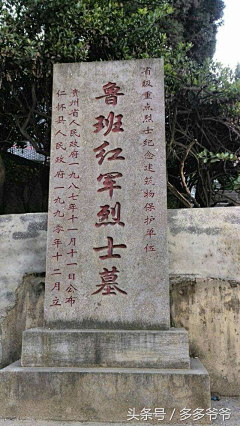 省级重点烈士纪念建筑物保护单位
鲁班红军烈士墓
贵州省人民政府一九八七年十一月十一日公布
仁怀县人民政府一九九零年十二月立
头条号 / 多多爷爷